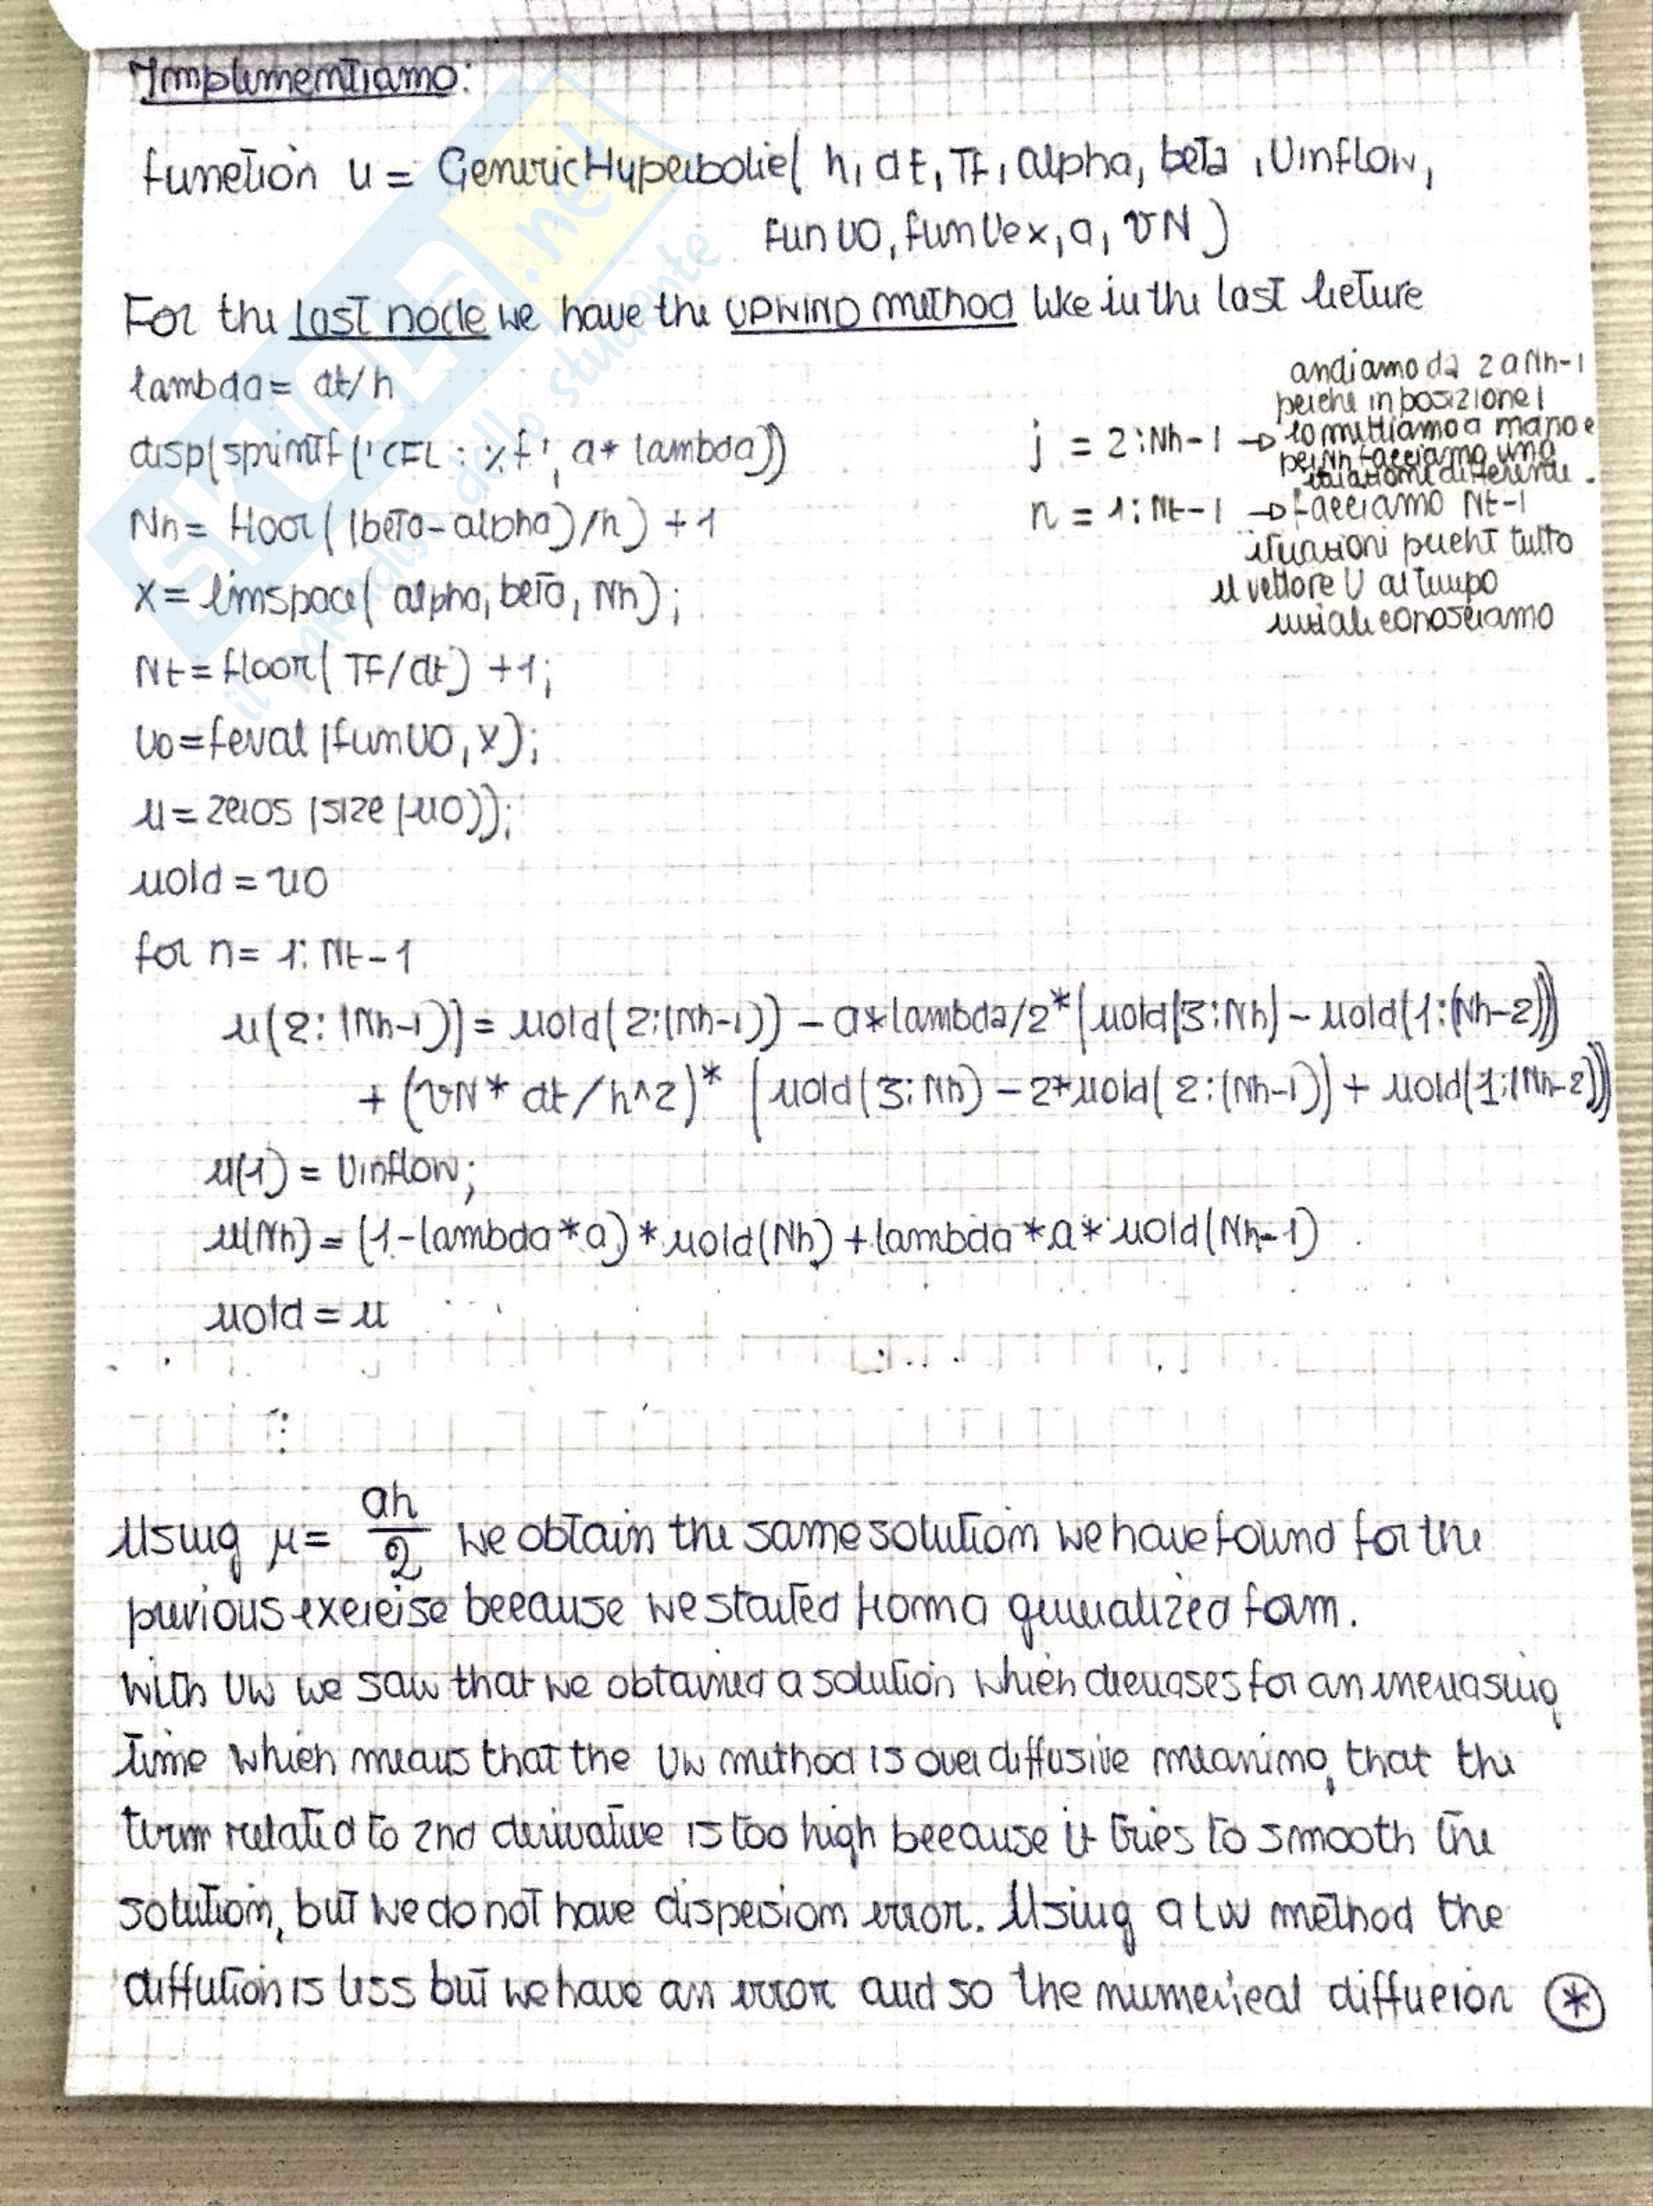 Implementiamo:
function u = GenericHyperbolic( h, dt, TF, alpha, beta, Uinflow,
fun U0, fun Uex, a, vN )
For the last node we have the UPWIND method like in the last lecture
lambda = dt/h
disp(sprintf('CFL: %f', a* lambda))
Nh = floor((beta-alpha)/h) + 1
x = linspace( alpha, beta, Nh);
Nt = floor( TF/dt) + 1;
U0 = feval (funU0, x);
u = zeros (size (u0));
uold = u0
andiamo da 2 a Nh-1
perché in posizione 1
j = 2:Nh-1 → lo mettiamo a mano e
per Nh facciamo una
differente.
n = 1:Nt-1 → facciamo Nt-1
iterazioni perché tutto
il vettore U al tempo
iniziale conosciamo
for n = 1:Nt-1
u(2:(Nh-1)) = uold(2:(Nh-1)) - a*lambda/2*(uold(3:Nh) - uold(1:(Nh-2)))
+ (vN* dt/h^2)* (uold(3:Nh) - 2*uold(2:(Nh-1)) + uold(1:(Nh-2)))
u(1) = Uinflow;
u(Nh) = (1-lambda*a)*uold(Nh) + lambda*a*uold(Nh-1)
uold = u
⋮
Using μ = ah/2 we obtain the same solution we have found for the
previous exercise because we started from a generalized form.
With UW we saw that we obtained a solution which decreases for an increasing
time which means that the UW method is over diffusive meaning, that the
term related to 2nd derivative is too high because it tries to smooth the
solution, but we do not have dispersion error. Using a LW method the
diffution is less but we have an error and so the numerical diffucion (*)
SKUOLA.net
il paradiso dello studente